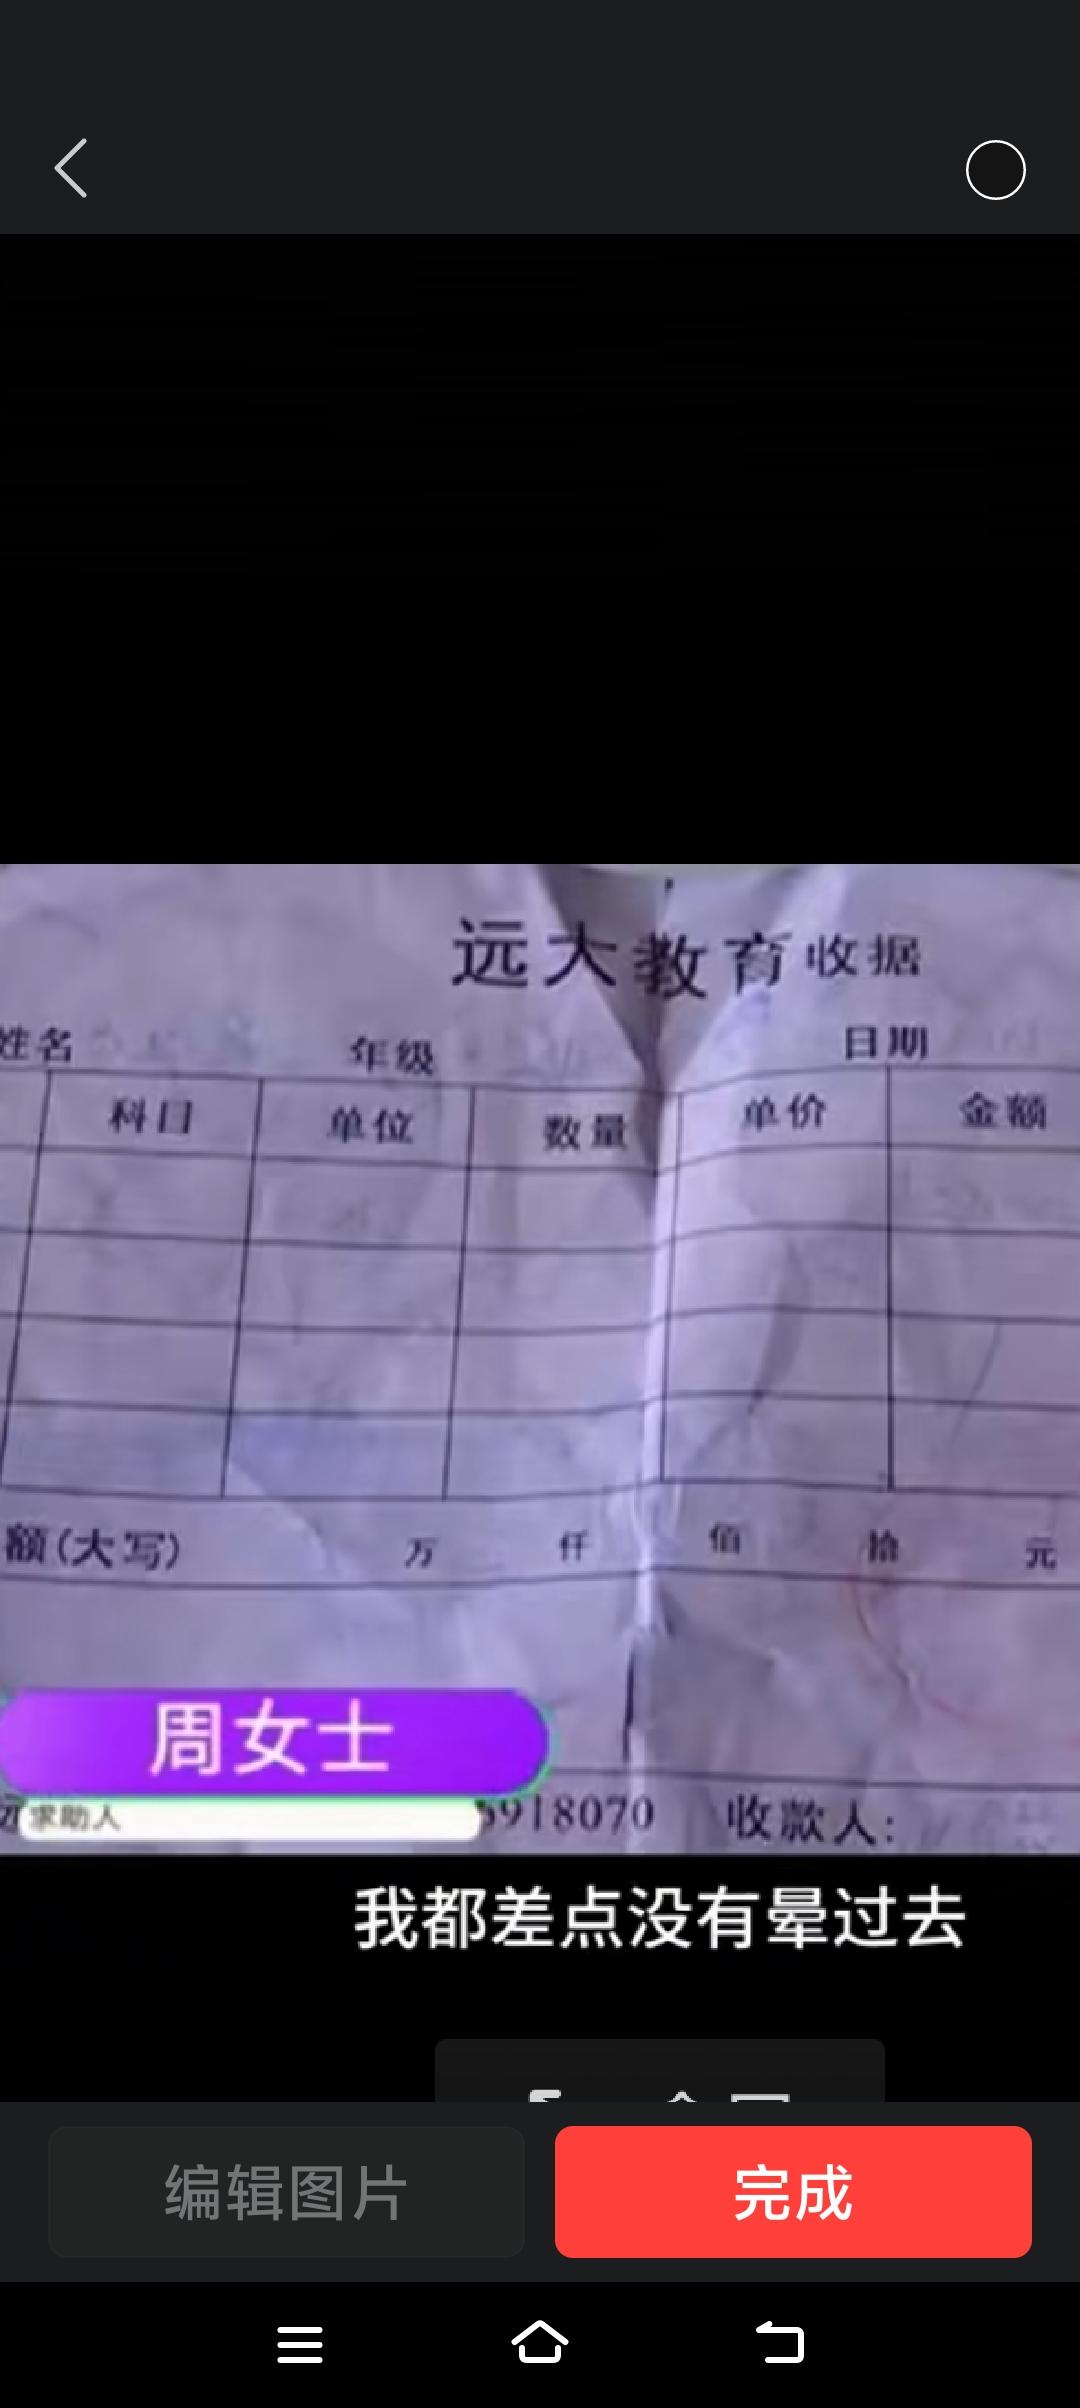 远大教育收据
姓名 年级 日期
科目 单位 数量 单价 金额
额(大写) 万 仟 佰 拾 元
周女士
求助人
5918070 收款人:
我都差点没有晕过去
编辑图片 完成